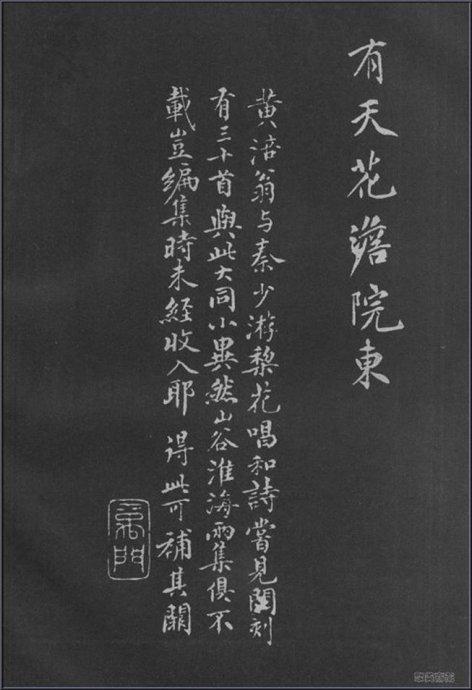 有天花澹院東
黄涪翁与秦少游棃花唱和詩嘗見閣刻
有三十首與此大同小異然山谷淮海兩集俱不
載豈編集時未經收入耶 得此可補其闕